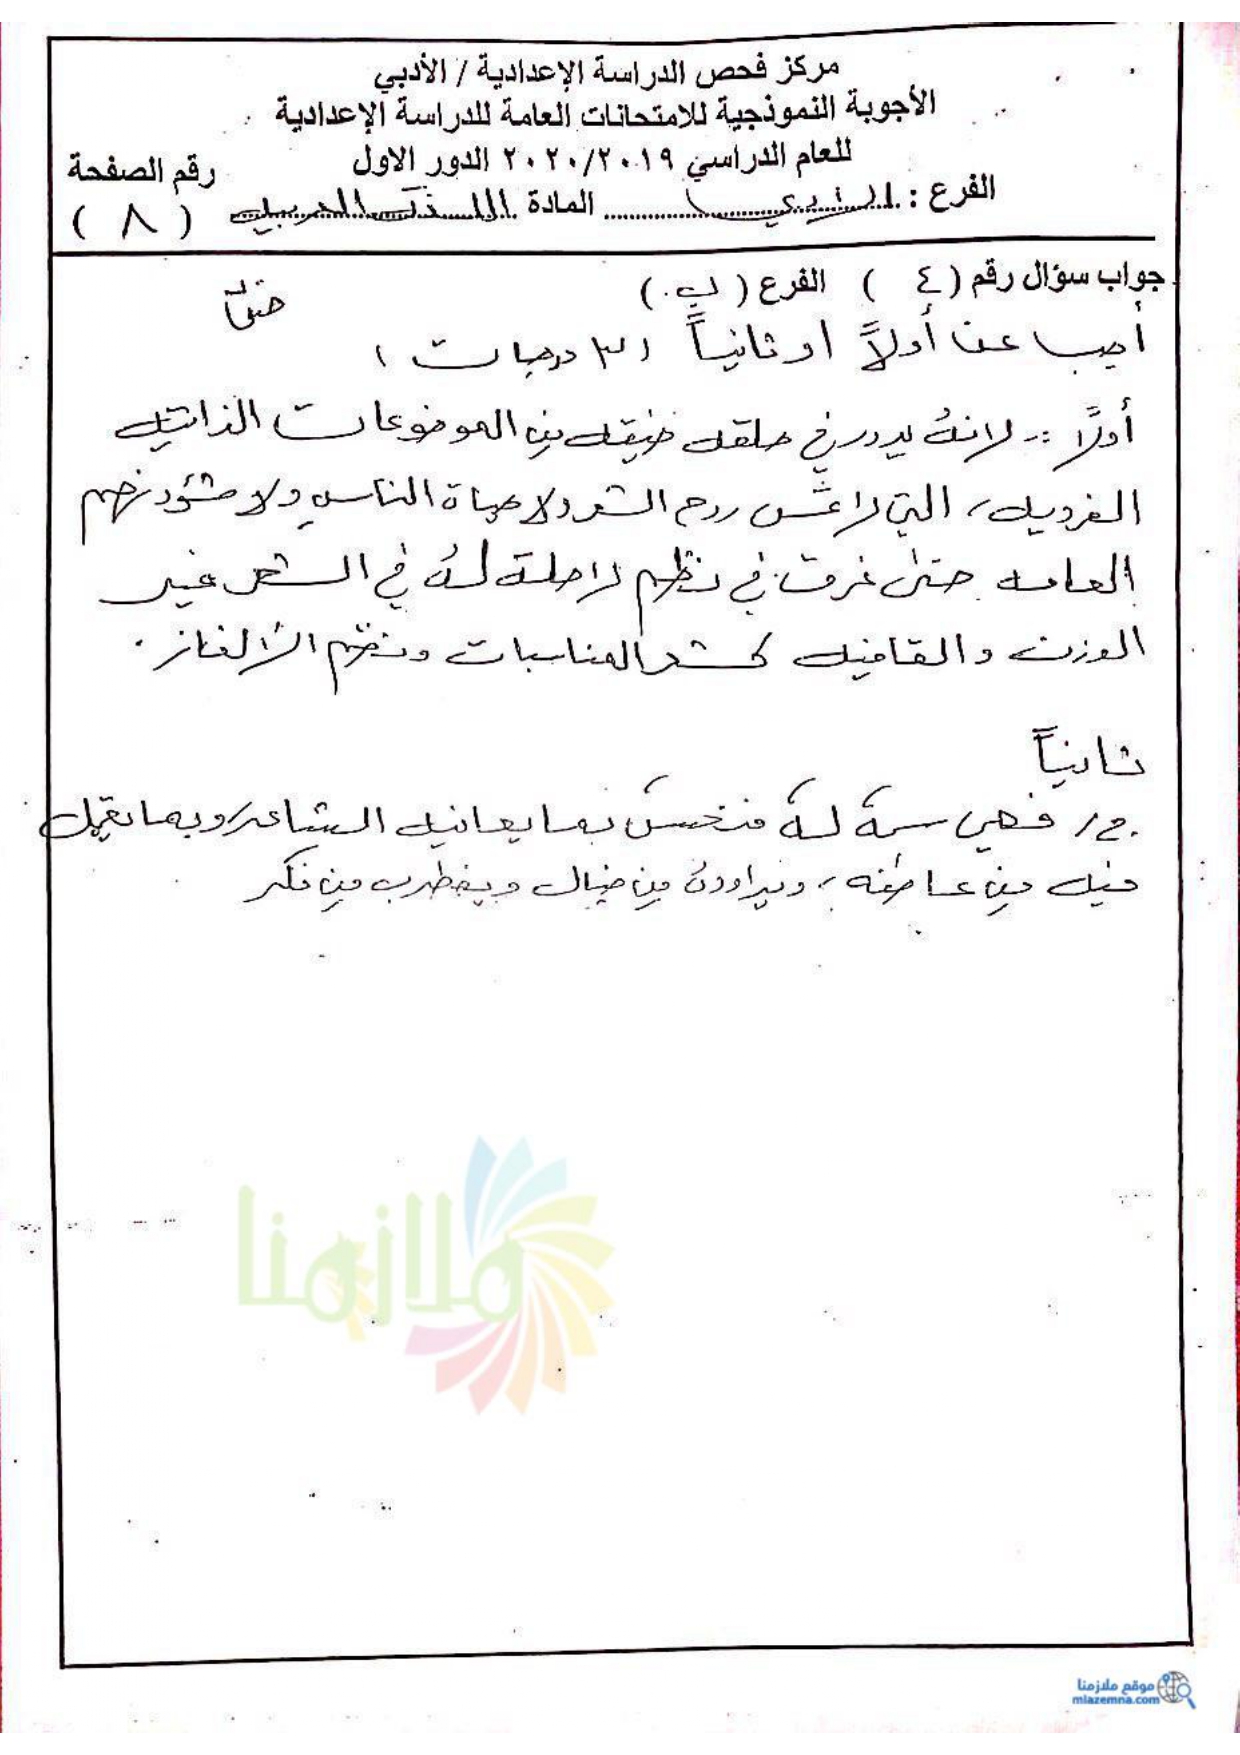 مركز فحص الدراسة الإعدادية / الأدبي
الأجوبة النموذجية للامتحانات العامة للدراسة الإعدادية
للعام الدراسي ٢٠٢٠/٢٠١٩ الدور الاول
رقم الصفحة
الفرع : الادبي المادة اللغة العربية ( ٨ )
جواب سؤال رقم ( ٤ ) الفرع ( ب )
أجب عن أولاً او ثانياً (٣ درجات)
أولاً :- لانهُ يدور في حلقة ضيقة بين الموضوعات الذاتية
الفردية، التي لا تمس روح الشعر ولا حياة الناس ولا شؤونهم
العامة حتى غرق في نظم لا صلة لهُ في الشعر غير
الوزن والقافية كشعر المناسبات ونظم الألغاز.
ثانياً
ج/ فهي سمة لهُ فنحسّ بما يعانيه الشاعر، وبما
فيه من عاطفة، ويراوده من خيال ويضطرب من فكر
ملازمنا
موقع ملازمنا
mlazemna.com